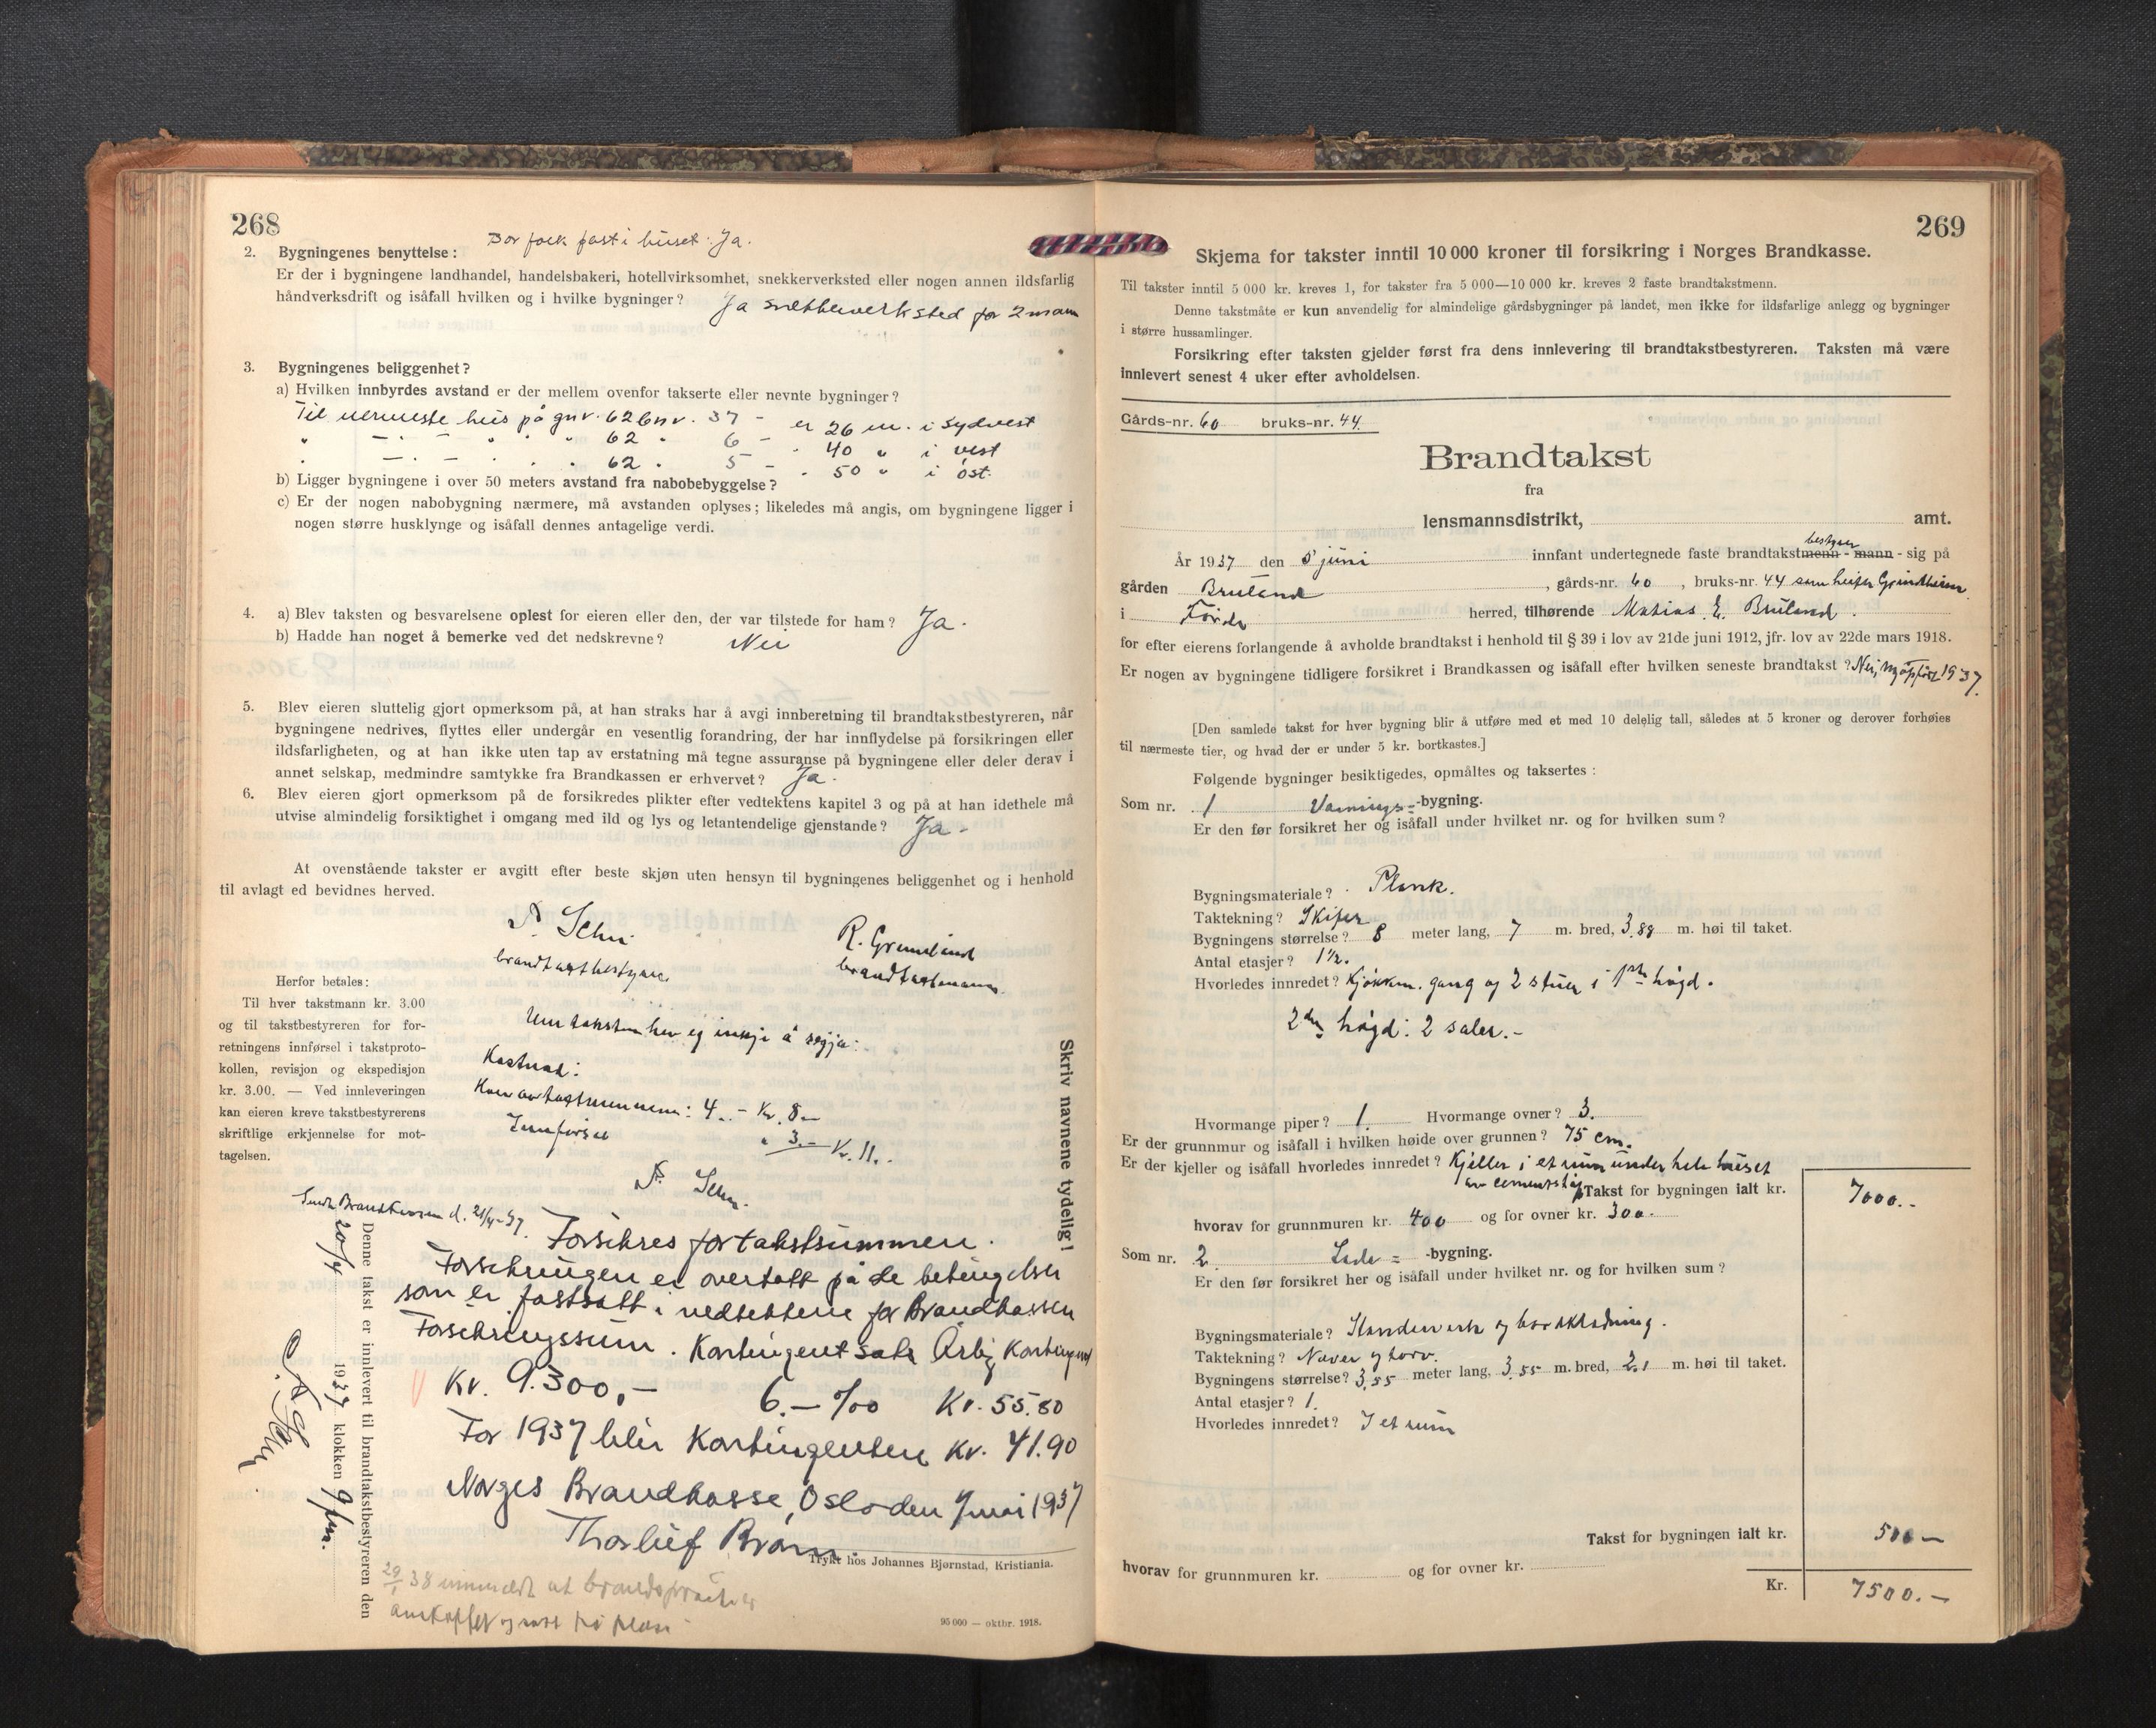 268
Bor folk fast i huset: Ja.
2. Bygningenes benyttelse:
Er der i bygningene landhandel, handelsbakeri, hotellvirksomhet, snekkerverksted eller nogen annen ildsfarlig
håndverksdrift og isåfall hvilken og i hvilke bygninger? Ja for 2 mann
3. Bygningenes beliggenhet?
a) Hvilken innbyrdes avstand er der mellem ovenfor takserte eller nevnte bygninger?
Til nermeste hus på gnr. 62 bnr. 37 - er 26 m. i sydvest
" - . - " " " 62 " 6 - " 40 " i vest
" - . - " " " 62 " 5 - " 50 " i øst.
b) Ligger bygningene i over 50 meters avstand fra nabobebyggelse?
c) Er der nogen nabobygning nærmere, må avstanden oplyses; likeledes må angis, om bygningene ligger i
nogen større husklynge og isåfall dennes antagelige verdi.
4. a) Blev taksten og besvarelsene oplest for eieren eller den, der var tilstede for ham? Ja.
b) Hadde han noget å bemerke ved det nedskrevne? Nei
5. Blev eieren sluttelig gjort opmerksom på, at han straks har å avgi innberetning til brandtakstbestyreren, når
bygningene nedrives, flyttes eller undergår en vesentlig forandring, der har innflydelse på forsikringen eller
ildsfarligheten, og at han ikke uten tap av erstatning må tegne assuranse på bygningene eller deler derav i
annet selskap, medmindre samtykke fra Brandkassen er erhvervet? Ja.
6. Blev eieren gjort opmerksom på de forsikredes plikter efter vedtektens kapitel 3 og på at han idethele må
utvise almindelig forsiktighet i omgang med ild og lys og letantendelige gjenstande? Ja -
At ovenstående takster er avgitt efter beste skjøn uten hensyn til bygningenes beliggenhet og i henhold
til avlagt ed bevidnes herved.
brandtakstbestyrer
R.
brandtakstmann.
Herfor betales:
Til hver takstmann kr. 3.00
og til takstbestyreren for for-
retningens innførsel i takstproto-
kollen, revisjon og ekspedisjon
kr. 3.00. — Ved innleveringen
kan eieren kreve takstbestyrerens
skriftlige erkjennelse for mot-
tagelsen.
Um taksten hev eg inkje å segja:
Kostnad:
4.- Kr. 8.-
Innførsel " 3.- Kr. 11.-
Skriv navnene tydelig!
Sendt Brandkassen d. 21/4-37.
Denne takst er innlevert til brandtakstbestyreren den
20/4 1937 klokken 9 fm.
Forsikres for takstsummen.
Forsikringen er overtatt på de betingelser
som er fastsatt i vedtektene for Brandkassen
Forsikringssum. Kontingentsats Årlig Kontingent
Kr. 9.300,- 6.- ‰ Kr. 55.80
For 1937 blir Kontingenten Kr. 41.90
Norges Brandkasse, Oslo den 4 mai 1937
Thorleif
Trykt hos Johannes Bjørnstad, Kristiania.
95 000 — oktbr. 1918.
269
Skjema for takster inntil 10 000 kroner til forsikring i Norges Brandkasse.
Til takster inntil 5 000 kr. kreves 1, for takster fra 5 000—10 000 kr. kreves 2 faste brandtakstmenn.
Denne takstmåte er kun anvendelig for almindelige gårdsbygninger på landet, men ikke for ildsfarlige anlegg og bygninger
i større hussamlinger.
Forsikring efter taksten gjelder først fra dens innlevering til brandtakstbestyreren. Taksten må være
innlevert senest 4 uker efter avholdelsen.
Gårds-nr. 60 bruks-nr. 44.
Brandtakst
fra
lensmannsdistrikt, amt.
bestyrer
År 1937 den 5 juni innfant undertegnede faste brandtakstmenn - mann - sig på
gården Bruland, gårds-nr. 60, bruks-nr. 44 som heiter Grindheim
i Förde herred, tilhørende Matias E. Bruland.
for efter eierens forlangende å avholde brandtakst i henhold til § 39 i lov av 21de juni 1912, jfr. lov av 22de mars 1918.
Er nogen av bygningene tidligere forsikret i Brandkassen og isåfall efter hvilken seneste brandtakst? Nei, nyoppført 1937.
[Den samlede takst for hver bygning blir å utføre med et med 10 delelig tall, således at 5 kroner og derover forhøies
til nærmeste tier, og hvad der er under 5 kr. bortkastes.]
Følgende bygninger besiktigedes, opmåltes og taksertes:
Som nr. 1 Vånings- -bygning.
Er den før forsikret her og isåfall under hvilket nr. og for hvilken sum?
Bygningsmateriale? Plank.
Taktekning? Skifer
Bygningens størrelse? 8 meter lang, 7 m. bred, 3.88 m. høi til taket.
Antal etasjer? 1½.
Hvorledes innredet? Kjøkken. gang og 2 stuer i 1ste høgd.
2dre høgd: 2 saler.-
Hvormange piper? 1. Hvormange ovner? 3.
Er der grunnmur og isåfall i hvilken høide over grunnen? 75 cm.
Er der kjeller og isåfall hvorledes innredet? Kjeller i et rum under hele huset
av cementstøp
Takst for bygningen ialt kr. 7000.-
hvorav for grunnmuren kr. 400 og for ovner kr. 300.-
Som nr. 2 Lade = -bygning.
Er den før forsikret her og isåfall under hvilket nr. og for hvilken sum?
Bygningsmateriale? Standerverk og bordkledning.
Taktekning? Never og torv.
Bygningens størrelse? 3.55 meter lang, 3.55 m. bred, 2.1 m. høi til taket.
Antal etasjer? 1.
Hvorledes innredet? I et rum
Takst for bygningen ialt kr. 500 -
hvorav for grunnmuren kr. og for ovner kr.
Kr. 7500.-